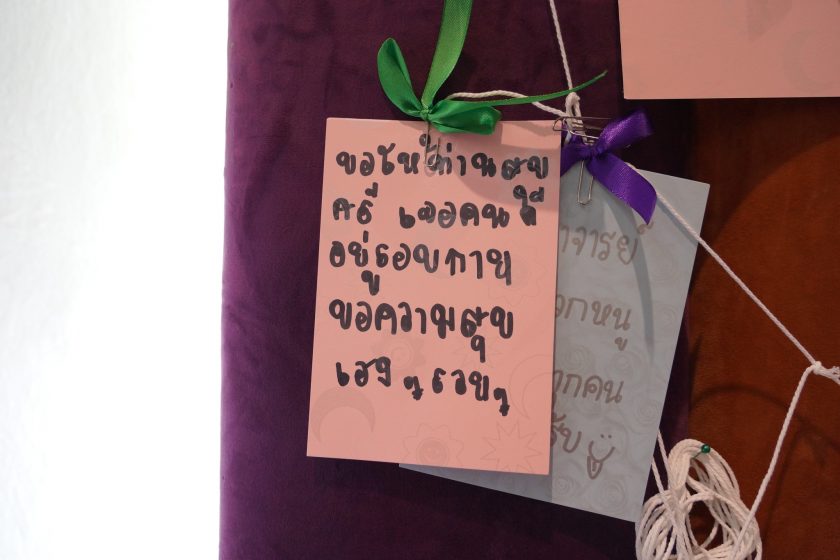 ขอให้ท่านสุข
คะดี เจอคนดี
อยู่รอบกาย
ขอความสุข
เฮงๆ รวยๆ
าจารย์
วกหนู
ทุกคน
รับ